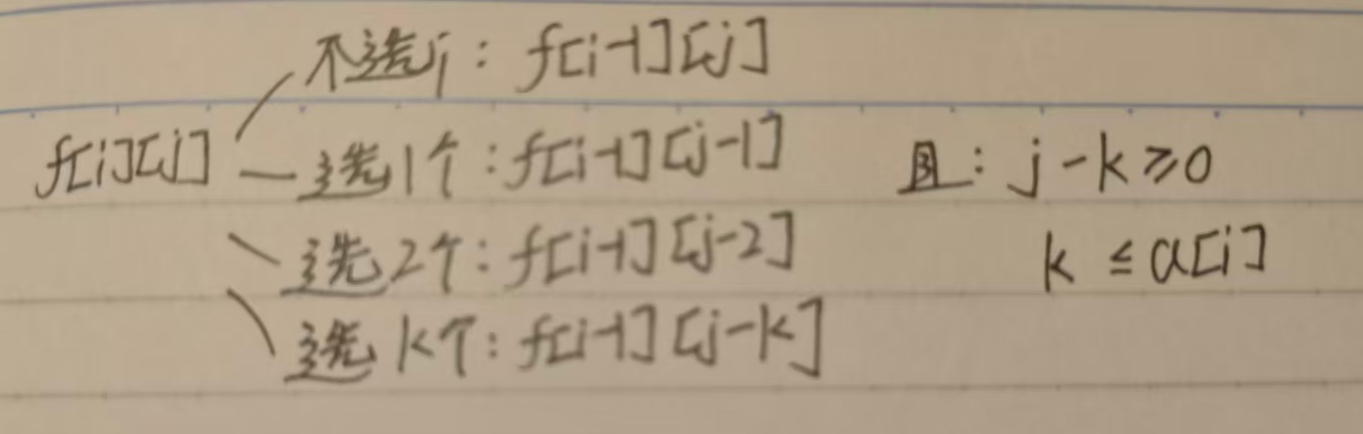 不选j: f[i-1][j]
f[i][j] 选1个: f[i-1][j-1] 且: j-k≥0
选2个: f[i-1][j-2] k≤a[i]
选k个: f[i-1][j-k]